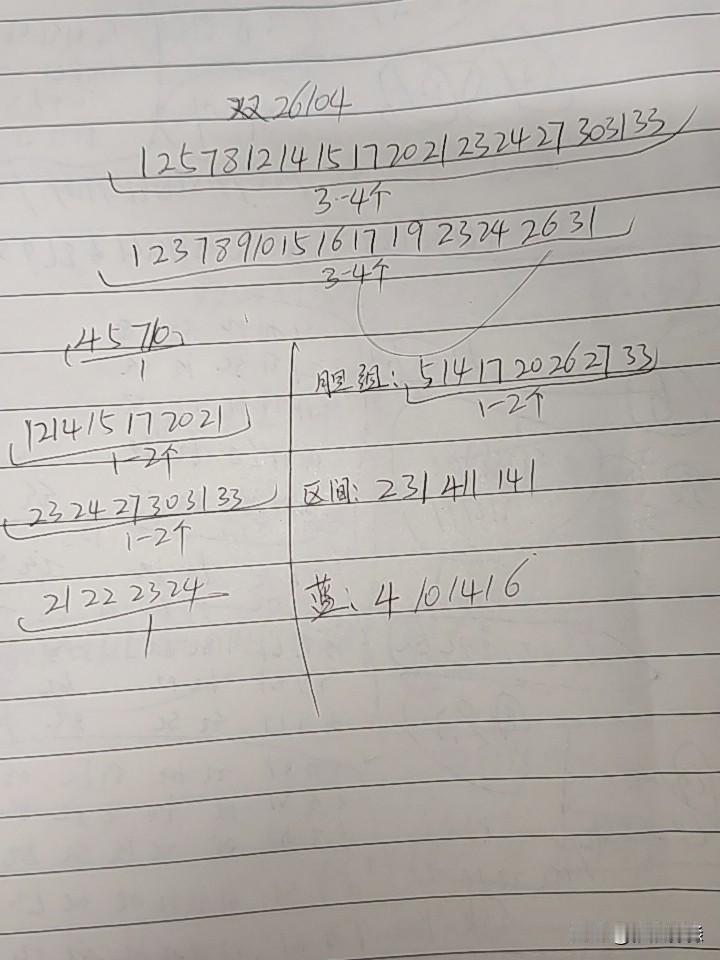 双26104
1 2 5 7 8 12 14 15 17 20 21 23 24 27 30 31 33
3-4个
1 2 3 7 8 9 10 15 16 17 19 23 24 26 31
3-4个
4 5 7 10
1
12 14 15 17 20 21
1-2个
23 24 27 30 31 33
1-2个
21 22 23 24
1
胆组: 5 14 17 20 26 27 33
1-2个
区间: 231 411 141
蓝: 4 10 14 16